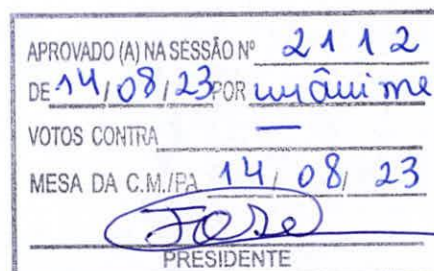 APROVADO (A) NA SESSÃO Nº 2112
DE 14/08/23 POR unânime
VOTOS CONTRA —
MESA DA C.M./PA 14/08/23
PRESIDENTE